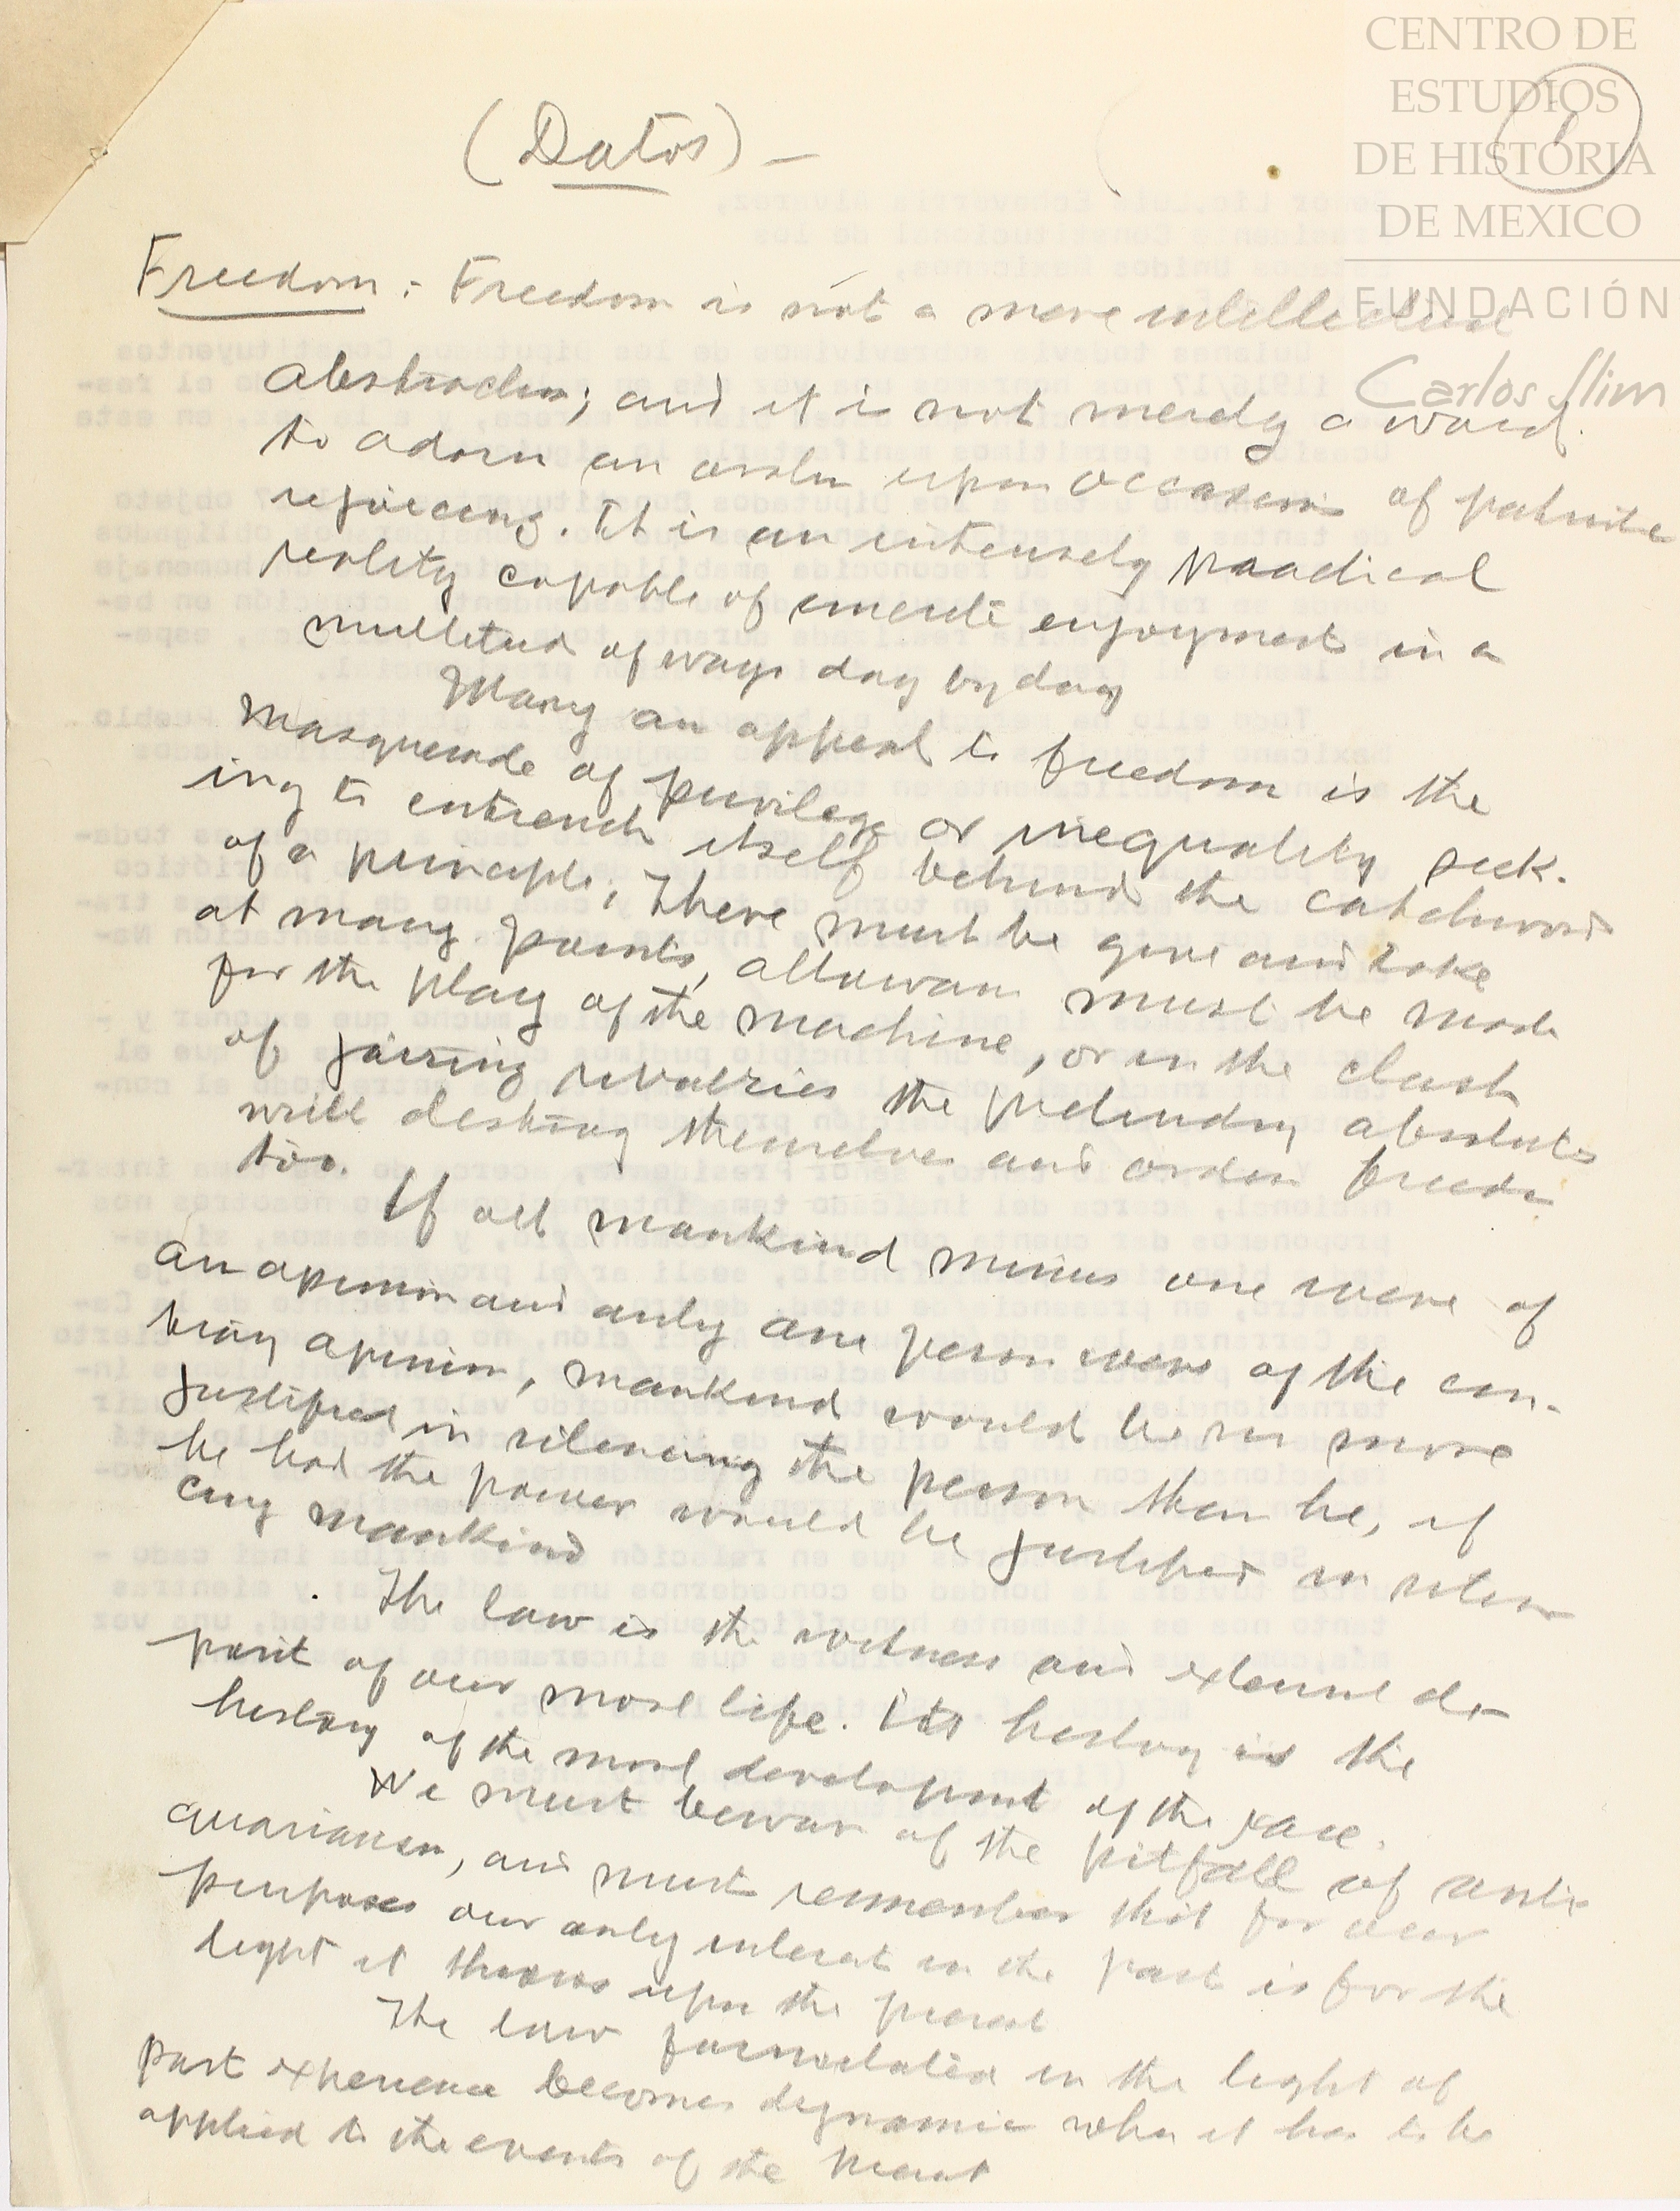 CENTRO DE
ESTUDIOS
DE HISTORIA
DE MEXICO
FUNDACIÓN
Carlos Slim
1
(Datos) —
Freedom: Freedom is not a mere intellectual
abstraction; and it is not merely a word
to adorn an oration upon occasions of patriotic
rejoicing. It is an intensely practical
reality capable of concrete enjoyment in a
multitude of ways day by day
Many an appeal to freedom is the
masquerade of privilege or inequality seek-
ing to entrench itself behind the catchword
of a principle. There must be give and take
at many points, allowance must be made
for the play of the machine, or in the clash
of jarring rivalries the pretending absolutes
will destroy themselves and ordered freedom
too.
If all mankind minus one were of
an opinion and only one person were of the con-
trary opinion, mankind would be no more
justified in silencing the person than he, if
he had the power would be justified in silen
cing mankind
The law is the witness and external de-
posit of our moral life. Its history is the
history of the moral development of the race.
We must beware of the pitfall of anti-
quarianism, and must remember that for our
purposes our only interest in the past is for the
light it throws upon the present
The law formulated in the light of
past experience becomes dynamic when it has to be
applied to the events of the present